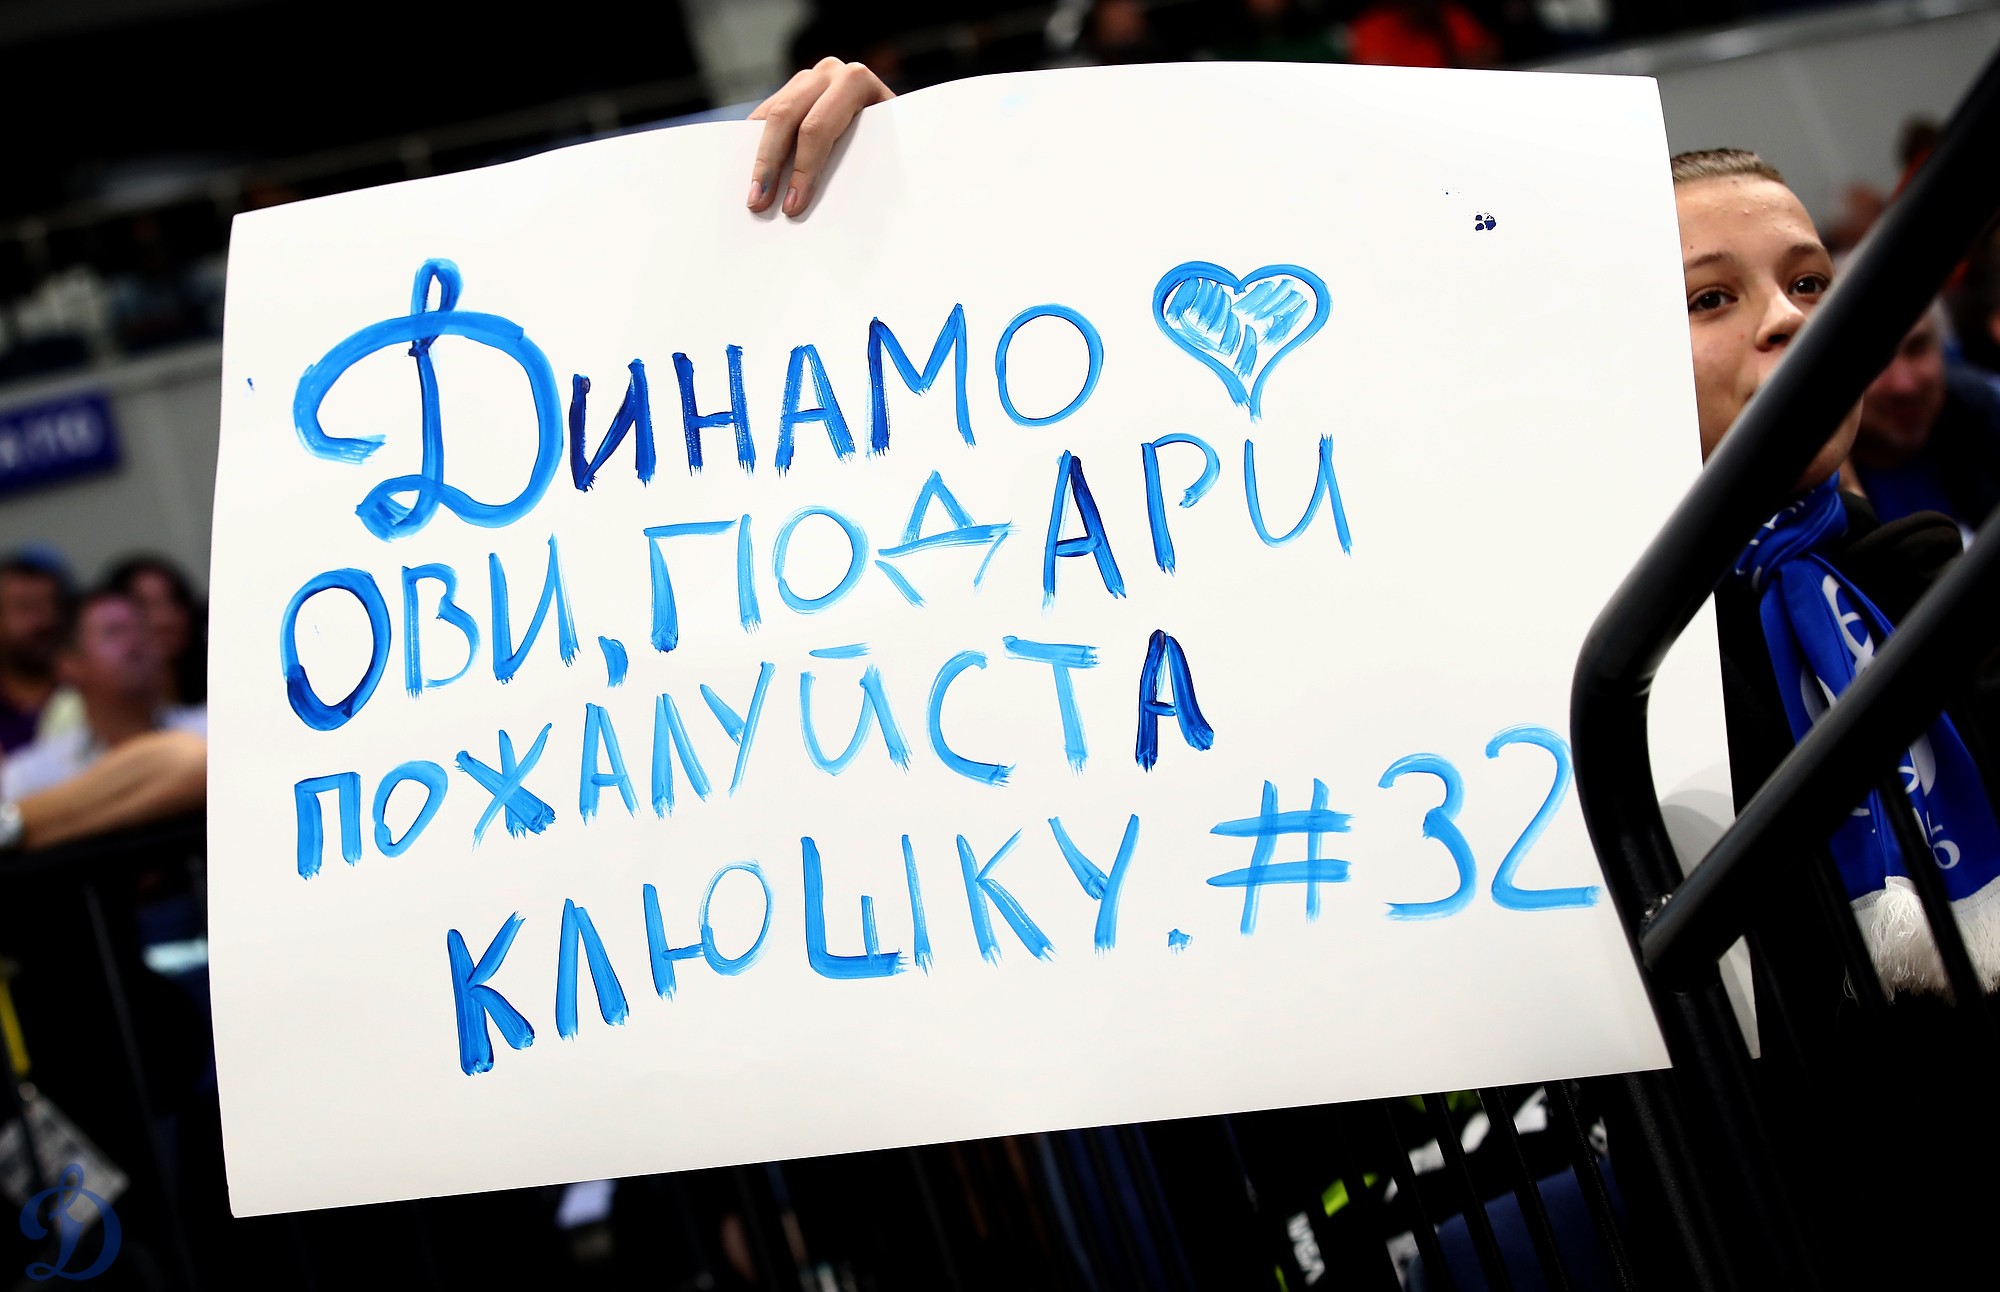 Динамо
ОВИ, ПОДАРИ
ПОЖАЛУЙСТА
КЛЮШКУ. #32